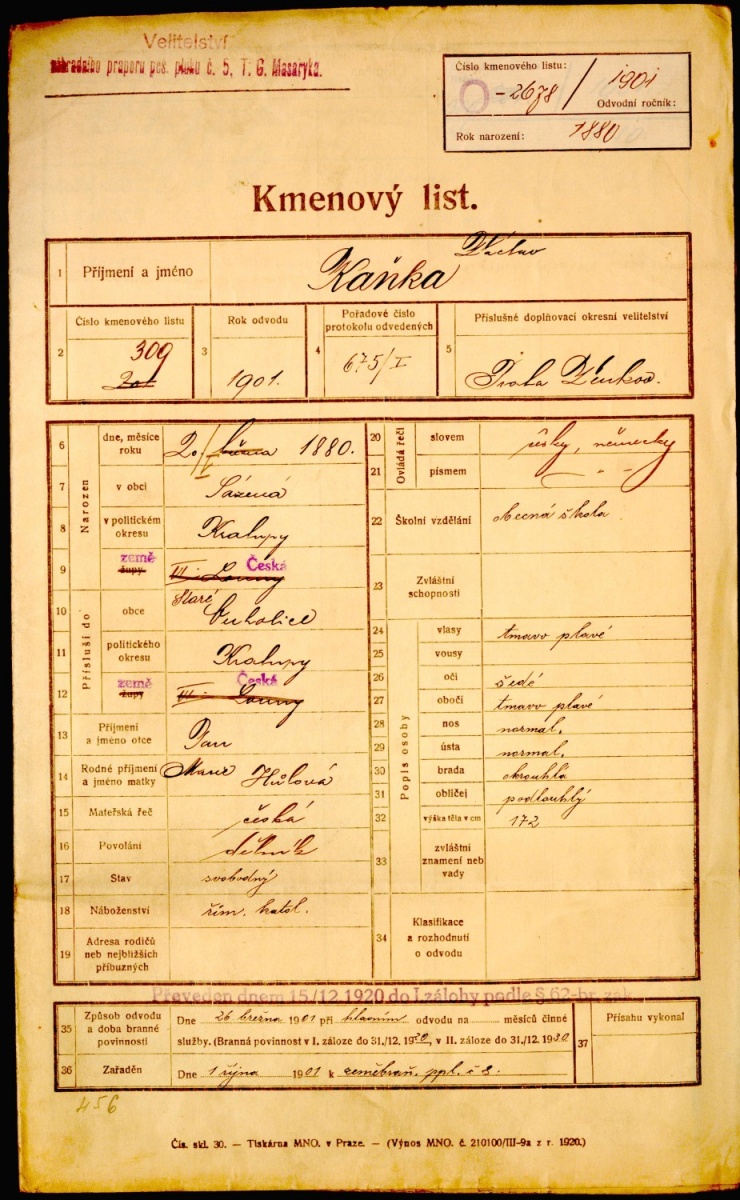 Velitelství
náhradního praporu pěš. pluku č. 5, T. G. Masaryka.
Číslo kmenového listu:
O-2678 / 1901
Odvodní ročník:
Rok narození: 1880
Kmenový list.
1 Příjmení a jméno Kaňka Václav
2 Číslo kmenového listu 309
3 Rok odvodu 1901.
4 Pořadové číslo protokolu odvedených 675/I
5 Příslušné doplňovací okresní velitelství Praha
Narozen
6 dne, měsíce roku 20/ 1880.
7 v obci Sázená
8 v politickém okresu Kralupy
9 země župy Česká III - Louny
Přísluší do
10 obce Staré Ouholice
11 politického okresu Kralupy
12 země župy Česká III - Louny
13 Příjmení a jméno otce Jan
14 Rodné příjmení a jméno matky Marie Hůlová
15 Mateřská řeč česká
16 Povolání dělník
17 Stav svobodný
18 Náboženství řím. katol.
19 Adresa rodičů neb nejbližších příbuzných
Ovládá řeči
20 slovem česky, německy
21 písmem - " -
22 Školní vzdělání obecná škola
23 Zvláštní schopnosti
Popis osoby
24 vlasy tmavo plavé
25 vousy
26 oči šedé
27 obočí tmavo plavé
28 nos normal.
29 ústa normal.
30 brada okrouhlá
31 obličej podlouhlý
32 výška těla v cm 172
33 zvláštní znamení neb vady
34 Klasifikace a rozhodnutí o odvodu
Převeden dnem 15/12.1920 do I.zálohy podle § 62-br. zák.
35 Způsob odvodu a doba branné povinnosti
Dne 26 března 1901 při hlavním odvodu na měsíců činné
služby. (Branná povinnost v I. záloze do 31./12. 1920, v II. záloze do 31./12. 1930.
36 Zařaděn Dne 1 října 1901 k zeměbraň. ppl. č 8.
37 Přísahu vykonal
456
Čís. skl. 30. — Tiskárna MNO. v Praze. — (Výnos MNO. č. 210100/III-9a z r. 1920.)